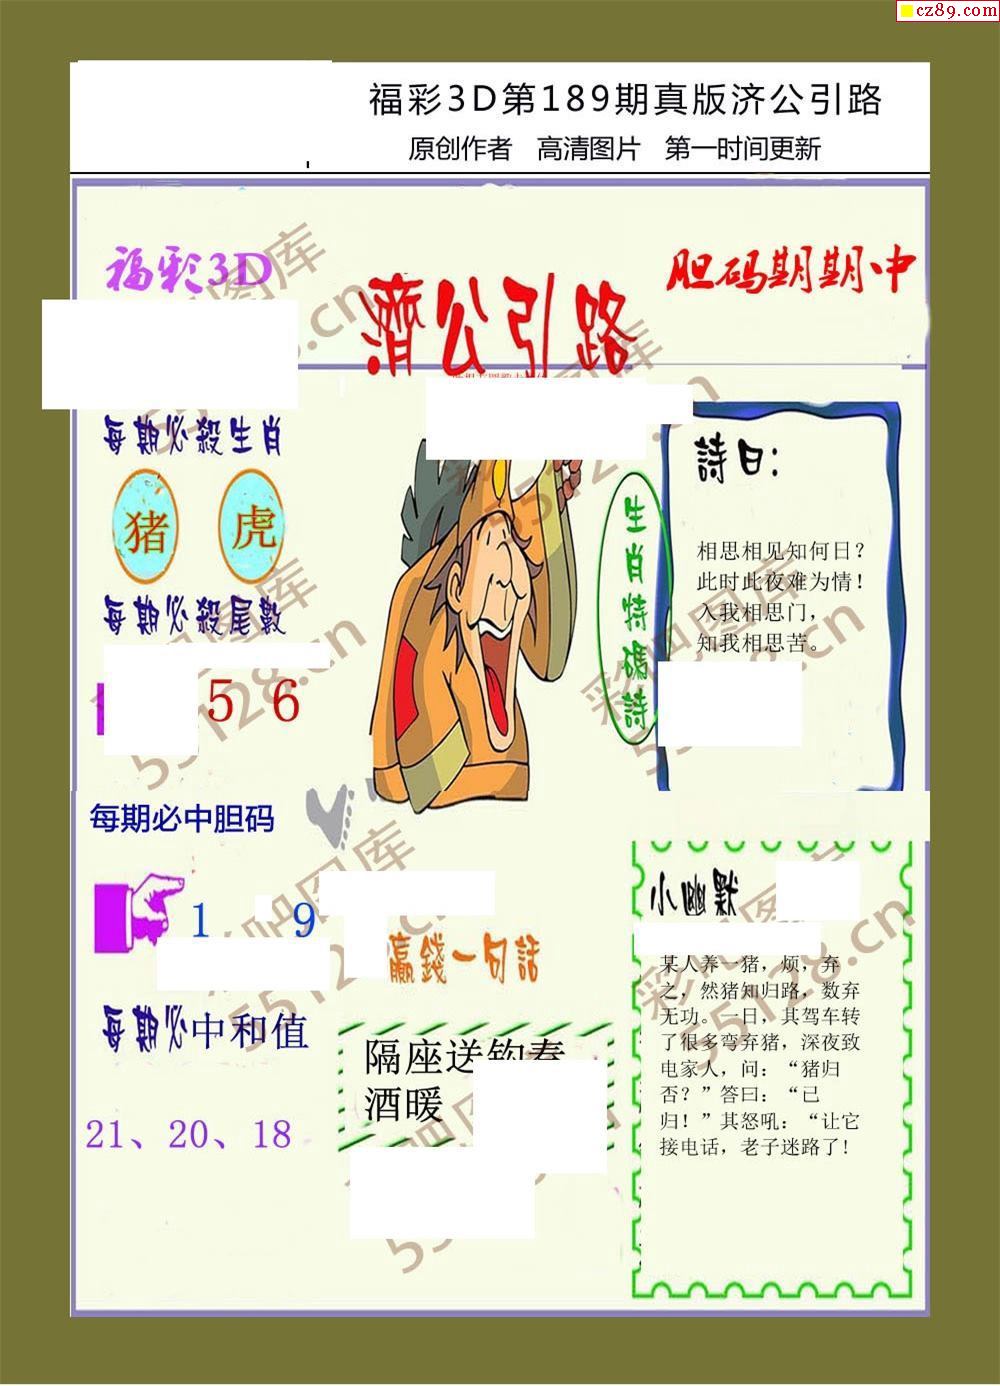 cz89.com
福彩3D第189期真版济公引路
原创作者 高清图片 第一时间更新
福彩3D
濟公引路
胆码期期中
每期必殺生肖
猪 虎
每期必殺尾數
5 6
每期必中胆码
1 9
每期必中和值
21、20、18
生肖特碼詩
詩曰:
相思相见知何日?
此时此夜难为情!
入我相思门,
知我相思苦。
赢錢一句話
隔座送钩春
酒暖
小幽默
某人养一猪,烦,弃
之,然猪知归路,数弃
无功。一日,其驾车转
了很多弯弃猪,深夜致
电家人,问:“猪归
否?”答曰:“已
归!”其怒吼:“让它
接电话,老子迷路了!
彩吧图库
55128.cn